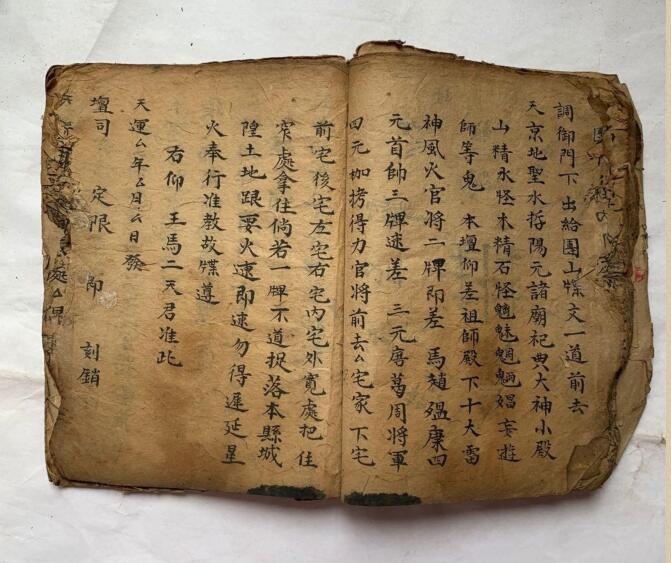 調御門下出給團山牒文一道前去
天京地聖水哲陽元諸廟祀典大神小殿
山精水怪木精石怪魑魅魍魎娼妄遊
師等鬼 本壇仰差祖師殿下十大雷
神風火官將二牌即差 馬趙瘟康四
元首帥三牌速差 三元唐葛周將軍
四元枷拷得力官將前去厶宅家下宅
前宅後宅左宅右宅內宅外寬處把住
窄處拿住倘若一牌不道捉落本縣城
隍土地跟要火速即速勿得遲延星
火奉行准教故牒遵
右仰 王馬二天君准此
天運厶年厶月厶日發
壇司 定限 即 刻銷